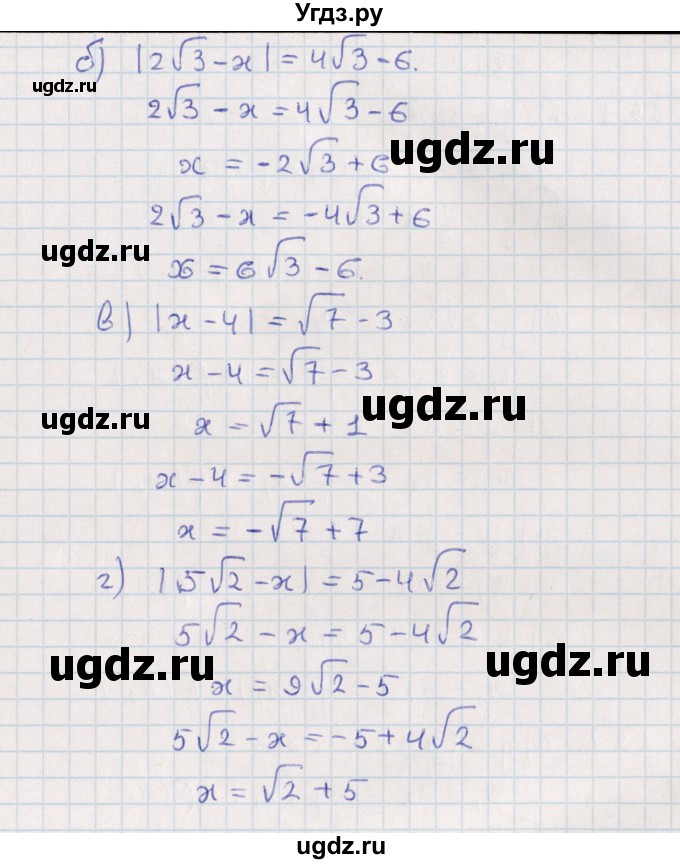 Угдз.ру
б) |2√3 - x| = 4√3 - 6.
ugdz.ru
2√3 - x = 4√3 - 6
ugdz.ru
x = -2√3 + 6
2√3 - x = -4√3 + 6
ugdz.ru
x = 6√3 - 6.
в) |x - 4| = √7 - 3
x - 4 = √7 - 3
ugdz.ru
ugdz.ru
x = √7 + 1
x - 4 = -√7 + 3
x = -√7 + 7
г) |5√2 - x| = 5 - 4√2
5√2 - x = 5 - 4√2
ugdz.ru
ugdz.ru
x = 9√2 - 5
5√2 - x = -5 + 4√2
x = √2 + 5
ugdz.ru